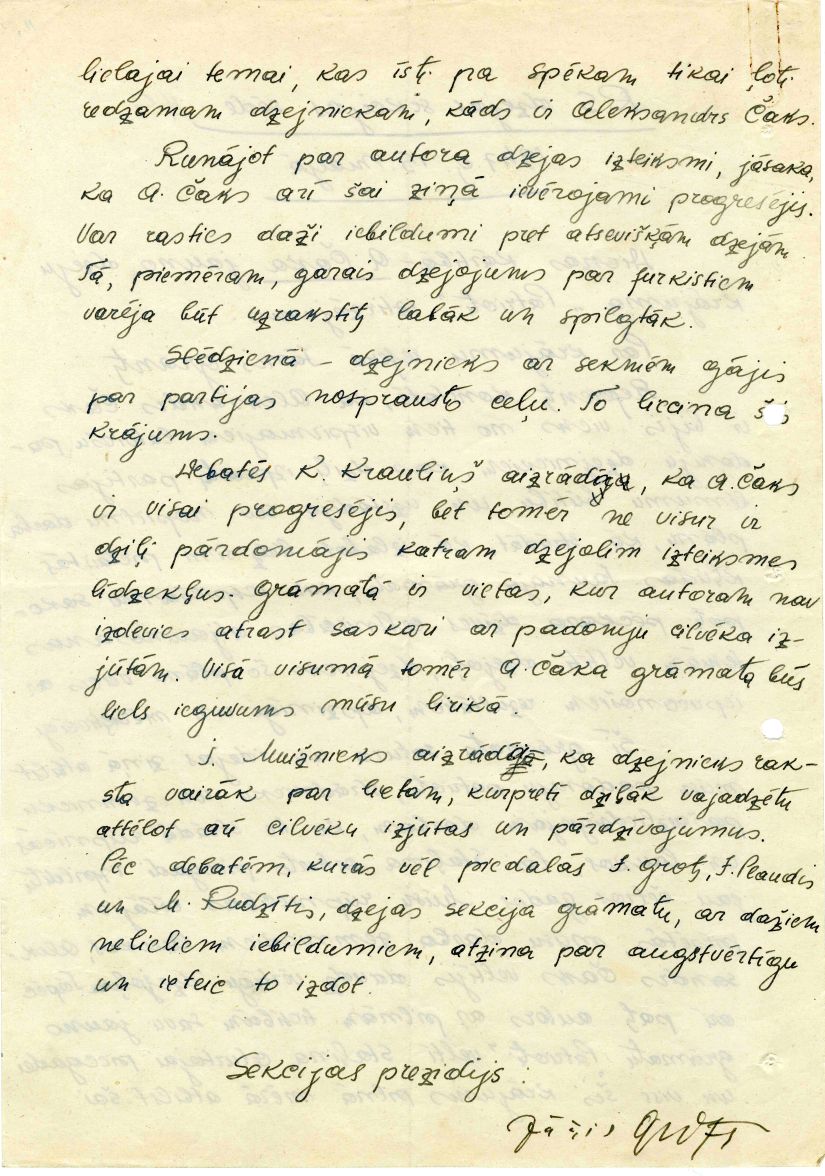 lielajai temai, kas īsti pa spēkam tikai ļoti
redzamam dzejniekam, kāds ir Aleksandrs Čaks.
Runājot par autora dzejas izteiksmi, jāsaka,
ka A. Čaks arī šai ziņā ievērojami progresējis.
Var rasties daži iebildumi pret atsevišķām dzejām.
Tā, piemēram, garais dzejojums par turkistiem
varēja būt uzrakstīts labāk un spilgtāk.
Slēdzienā – dzejnieks ar sekmēm gājis
par partijas nosprausto ceļu. To liecina šis
krājums.
Debatēs K. Krauliņš aizrāda, ka A. Čaks
ir visai progresējis, bet tomēr ne visur ir
dziļi pārdomājis katram dzejolim izteiksmes
līdzekļus. Grāmatā ir vietas, kur autoram nav
izdevies atrast saskari ar padomju cilvēka iz-
jūtām. Visā visumā tomēr A. Čaka grāmata būs
liels ieguvums mūsu lirikā.
J. Muižnieks aizrāda, ka dzejnieks rak-
sta vairāk par lietām, kurpretī dziļāk vajadzētu
attēlot arī cilvēku izjūtas un pārdzīvojumus.
Pēc debatēm, kurās vēl piedalās J. Grots, J. Plaudis
un M. Rudzītis, dzejas sekcija grāmatu, ar dažiem
nelieliem iebildumiem, atzina par augstvērtīgu
un ieteic to izdot.
Sekcijas prezidijs:
Jānis Grots